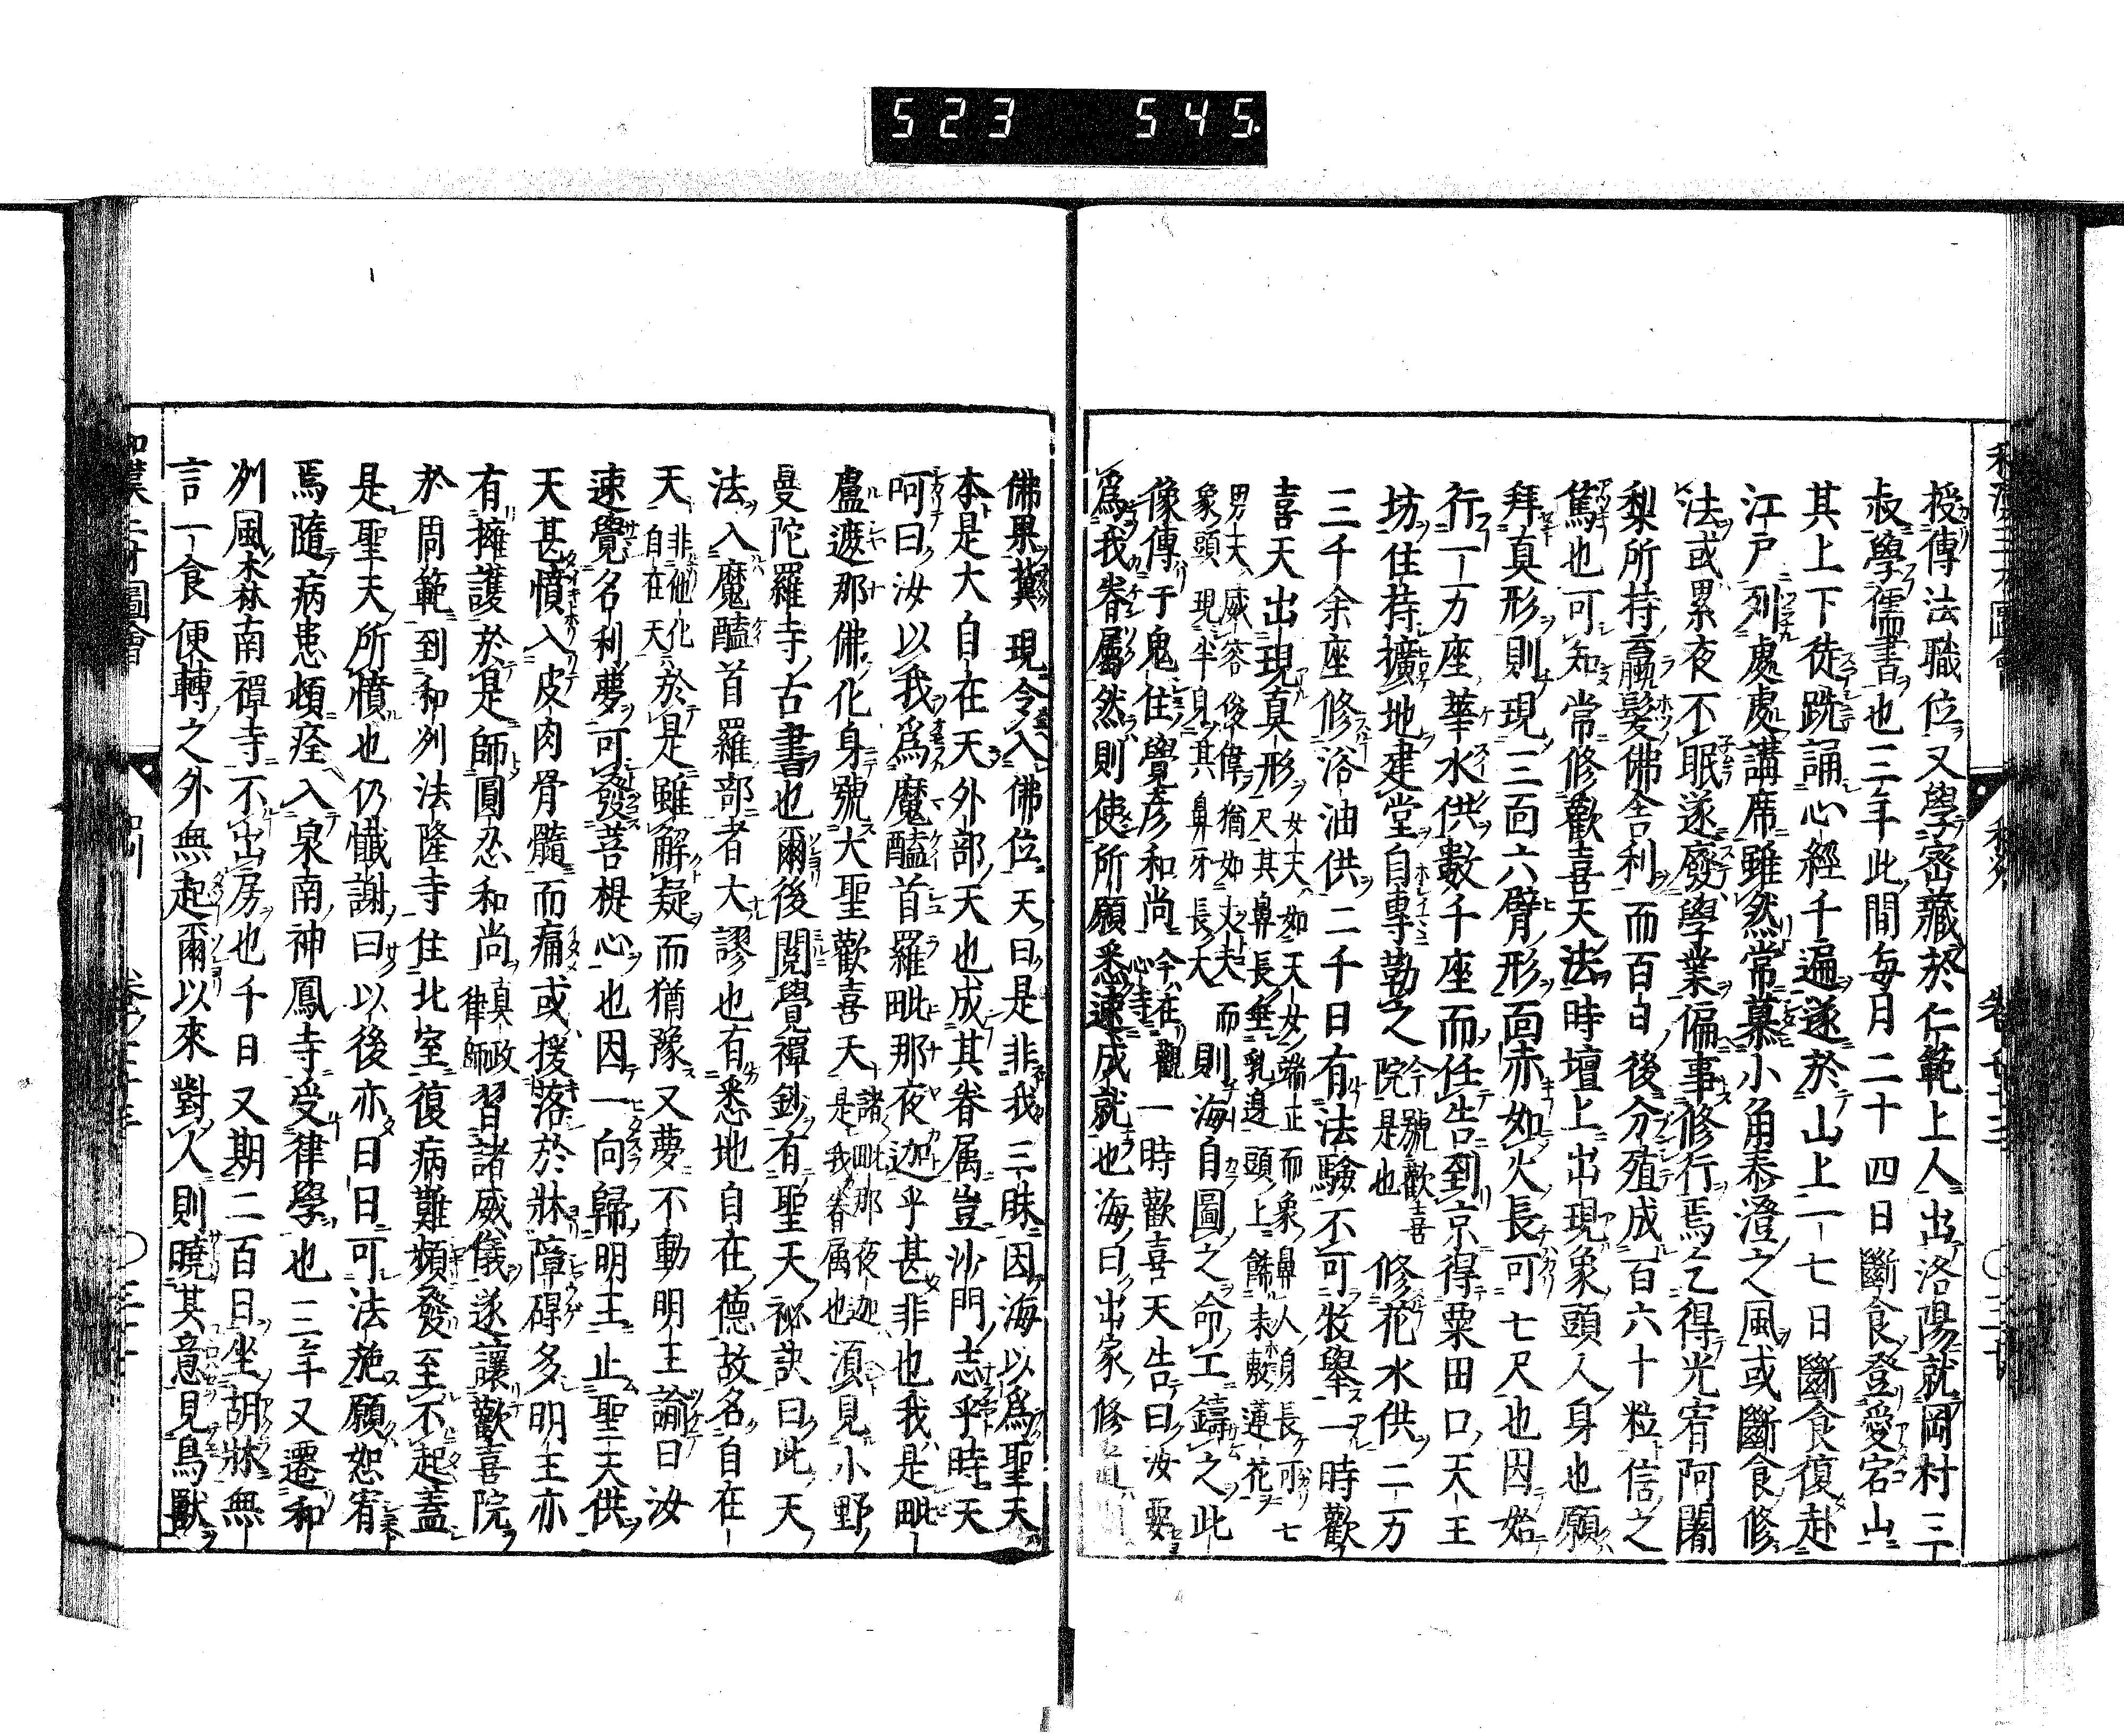 523 545
授傳法職位又學密藏於仁範上人出洛陽就岡村三
叔學儒書也三年此間每月二十四日斷食登愛宕山
其上下徒跣誦心經千遍遂於山上一七日斷食復赴
江戸列處處講席雖然常慕小角泰澄之風或斷食修
法或累夜不眠遂廢學業偏事修行焉乞得光宥阿闍
梨所持羸髮佛舍利而百日後分殖成百六十粒信之
篤也可知常修歡喜天法時壇上出現象頭人身也願
拜真形則現三面六臂形面赤如火長可七尺也因始
行一万座華水供數千座而任告到京得粟田口天王
坊住持擴地建堂自專勤之今號歡喜院是也修花水供二万
三千余座修浴油供二千日有法驗不可牧舉一時歡
喜天出現真形女天如天女端正而象鼻人身長可七尺其鼻長垂乳邊頭上餝未敷蓮花
男天威容俊偉猶如丈夫而象頭現半身其鼻牙長大則海自圖之命工鑄之此
像傳于鬼住覺彥和尚今在觀心寺一時歡喜天告曰汝要
爲我眷屬然則使所願悉速成就也海曰出家修
佛果冀現令入佛位天曰是非我三昧因海以爲聖天
本是大自在天外部天也成其眷属豈沙門志乎時天
呵曰汝以我爲魔醯首羅毗那夜迦乎甚非也我是毗
盧遮那佛化身號大聖歡喜天諸毗那夜迦是我眷属也須見小野
曼陀羅寺古書也爾後閲覺禪鈔有聖天祕訣曰此天
法入魔醯首羅部者大謬也有悉地自在德故名自在
天非他化自在天於是雖解疑而猶豫又夢不動明王諭曰汝
速覺名利夢可發菩提心也因一向歸明王止聖天供
天甚憤入皮肉骨髓而痛或援落於牀障碍多明王亦
有擁護於是師圓忍和尚真政律師習諸威儀遂讓歡喜院
於周範到和州法隆寺住北室復病難頻發至不起蓋
是聖天所憤也仍懺謝曰以後亦日日可法施願恕宥
焉隨病患頓痊入泉南神鳳寺受律學也三年又遷和
州風森南禪寺不出房也千日又期二百日坐胡牀無
言一食便轉之外無起爾以來對人則曉其意見鳥獸